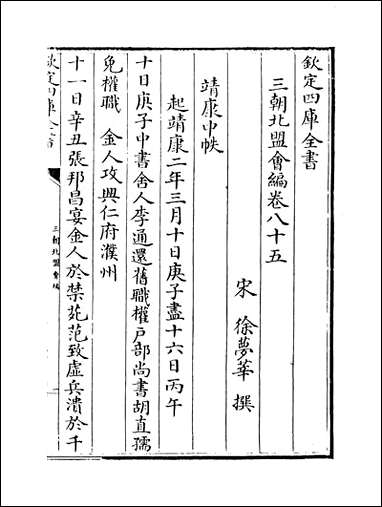 欽定四庫全書
三朝北盟會編卷八十五
宋 徐夢莘 撰
靖康中帙
起靖康二年三月十日庚子盡十六日丙午
十日庚子中書舍人李通還舊職權戶部尚書胡直孺
免權職 金人攻興仁府濮州
十一日辛丑張邦昌宴金人於禁苑范致虛兵潰於千
欽定四庫全書
三朝北盟會編